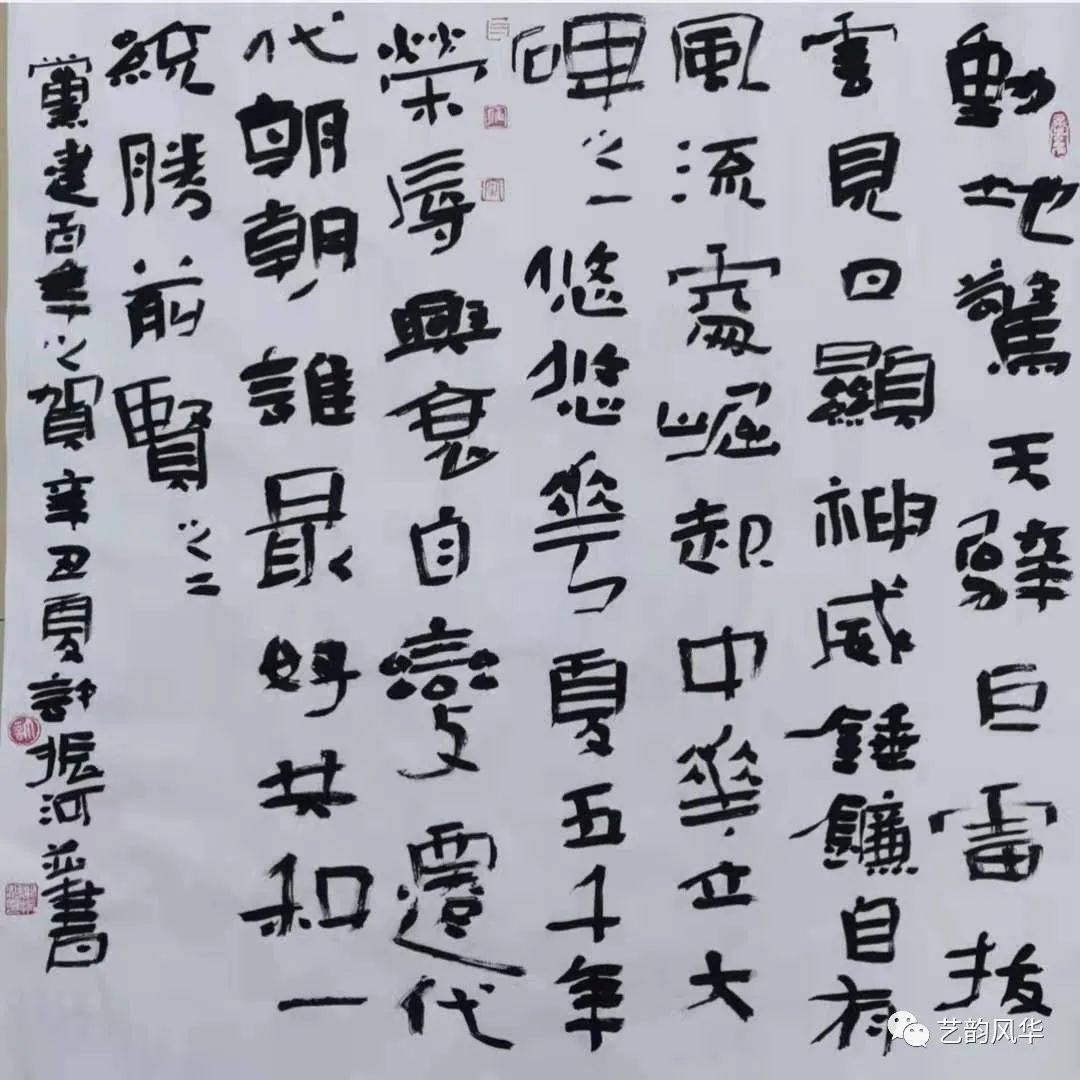 動地驚天劈巨雷拔
雲見日顯神威錘鐮自有
風流崛起中華立大
碑之一悠悠華夏五千年
榮辱興衰自變遷代
代朝朝誰最好共和一
統勝前賢之二
黨建百年之賀辛丑夏許振河並書
艺韵风华